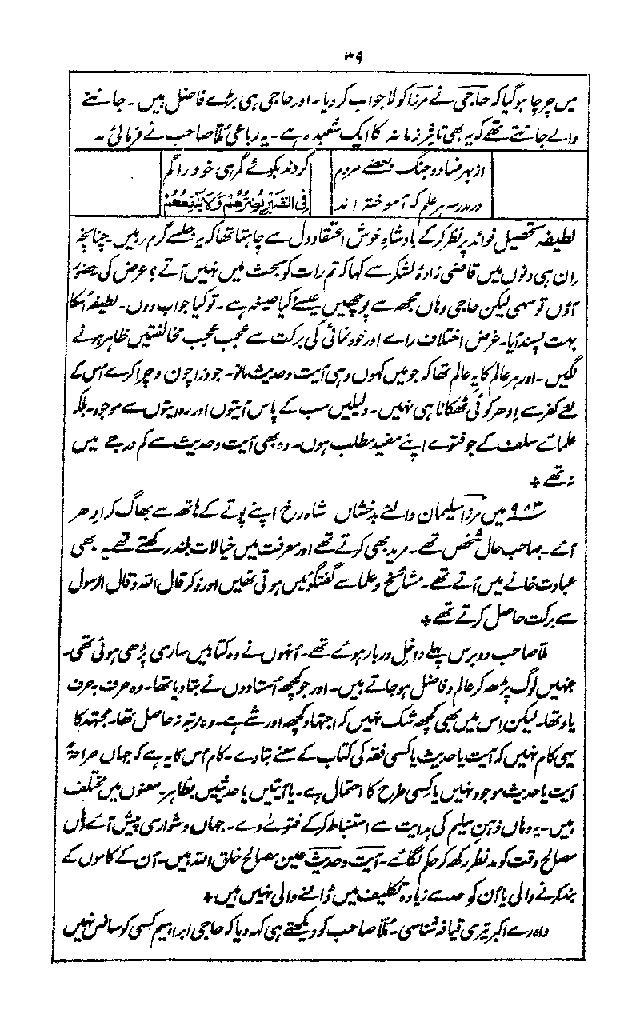 ۳۹
میں چرچا ہوگیا کہ حاجی نے مرزا کو لاجواب کر دیا۔ اور حاجی ہی بڑے فاضل ہیں۔ جاننے
والے جانتے تھے کہ یہ بھی تاثیر زمانہ کا ایک شعبدہ ہے۔ یہ رباعی مُلّا صاحب نے فرمائی۔
از بہر فساد و جنگ بعضے مردم
کردند بکوئے گمرہی خود را گم
در مدرسہ ہر علم کہ آموختہ اند
فِی القَبرِ یَضُرُّھُمْ وَلَا یَنفَعُھُمْ
لطیفہ تحصیل فوائد پر نظر کرکے بادشاہ خوش اعتقاد دل سے چاہتا تھا کہ یہ جلسے گرم رہیں۔ چنانچہ
ان ہی دنوں میں قاضی زادۂ لشکر سے کہا کہ تم رات کو بحث میں نہیں آتے؟ عرض کی حضور
آؤں تو سہی لیکن حاجی وہاں مجھ سے پوچھیں عیسےٰ کیا صیغہ ہے۔ تو کیا جواب دوں۔ لطیفہ اُسکا
بہت پسند آیا۔ غرض اختلاف رائے اور خودنمائی کی برکت سے عجب عجب مخالفتیں ظاہر ہونے
لگیں۔ اور ہر عالم کا یہ عالم تھا کہ جو میں کہوں وہی آیت و حدیث مانو۔ جو ذرا چون و چرا کرے اُس کے
لئے کفر سے اِدھر کوئی ٹھکانا ہی نہیں۔ دلیلیں سب کے پاس آیتوں اور روایتوں سے موجود۔ بلکہ
علمائے سلف کے جو فتوے اپنے مفید مطلب ہوں۔ وہ بھی آیت و حدیث سے کم درجے میں
نہ تھے +
۹۸۳ میں مرزا سلیمان والئے بدخشاں شاہ رخ اپنے پوتے کے ہاتھ سے بھاگ کر اِدھر
آئے۔ صاحب حال شخص تھے۔ مرید بھی کرتے تھے اور معرفت میں خیالات بلند رکھتے تھے۔ یہ بھی
عبادت خانے میں آتے تھے۔ مشائخ و علما سے گفتگوئیں ہوتی تھیں اور ذکر قال اللہ و قال الرسول
سے برکت حاصل کرتے تھے +
مُلّا صاحب دو برس پہلے داخل دربار ہوئے تھے۔ اُنہوں نے وہ کتابیں ساری پڑھی ہوئی تھی۔
جنہیں لوگ پڑھ کر عالم و فاضل ہو جاتے ہیں۔ اور جو کچھ اُستادوں نے بتا دیا تھا۔ وہ حرف بحرف
یاد تھا۔ لیکن اس میں بھی کچھ شک نہیں کہ اجتہاد کچھ اور شے ہے۔ وہ مرتبہ نہ حاصل تھا۔ مجتہد کا
یہی کام نہیں کہ آیت یا حدیث یا کسی فقہ کی کتاب کے معنے بتا دے۔ کام اُس کا یہ ہے کہ جہاں صراحۃً
آیت یا حدیث موجود نہیں یا کسی طرح کا احتمال ہے۔ یا آیتیں یا حدیثیں بظاہر معنوں میں مختلف
ہیں۔ یہ وہاں ذہن سلیم کی ہدایت سے استنباط کرکے فتوے دے۔ جہاں دشواری پیش آئے وہاں
مصالح وقت کو مدنظر رکھ کر حکم لگائے۔ آیت و حدیث عین مصالح خلق اللہ ہیں۔ اُن کے کاموں کے
بند کرنے والی یا اُن کو حد سے زیادہ تکلیف میں ڈالنے والی نہیں ہیں +
واہ رے اکبر تیری قیافہ شناسی۔ مُلّا صاحب کو دیکھتے ہی کہ دیا کہ حاجی ابراہیم کسی کو سانس نہیں